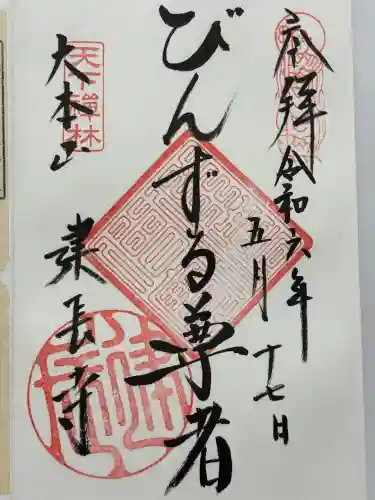 奉拝 令和六年
五月十七日
びんずる尊者
天下禅林
大本山 建長寺